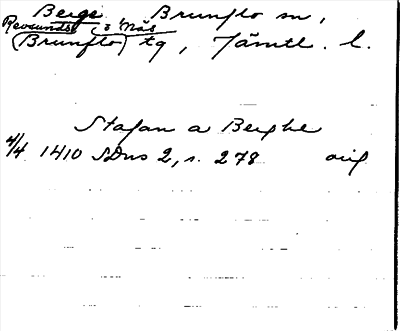 Berge Brunflo sn,
Revsunds o Näs
(Brunflo) tg, Jämtl. l.
Stafan a Berghe
4/4 1410 SDns 2, s. 278 orig